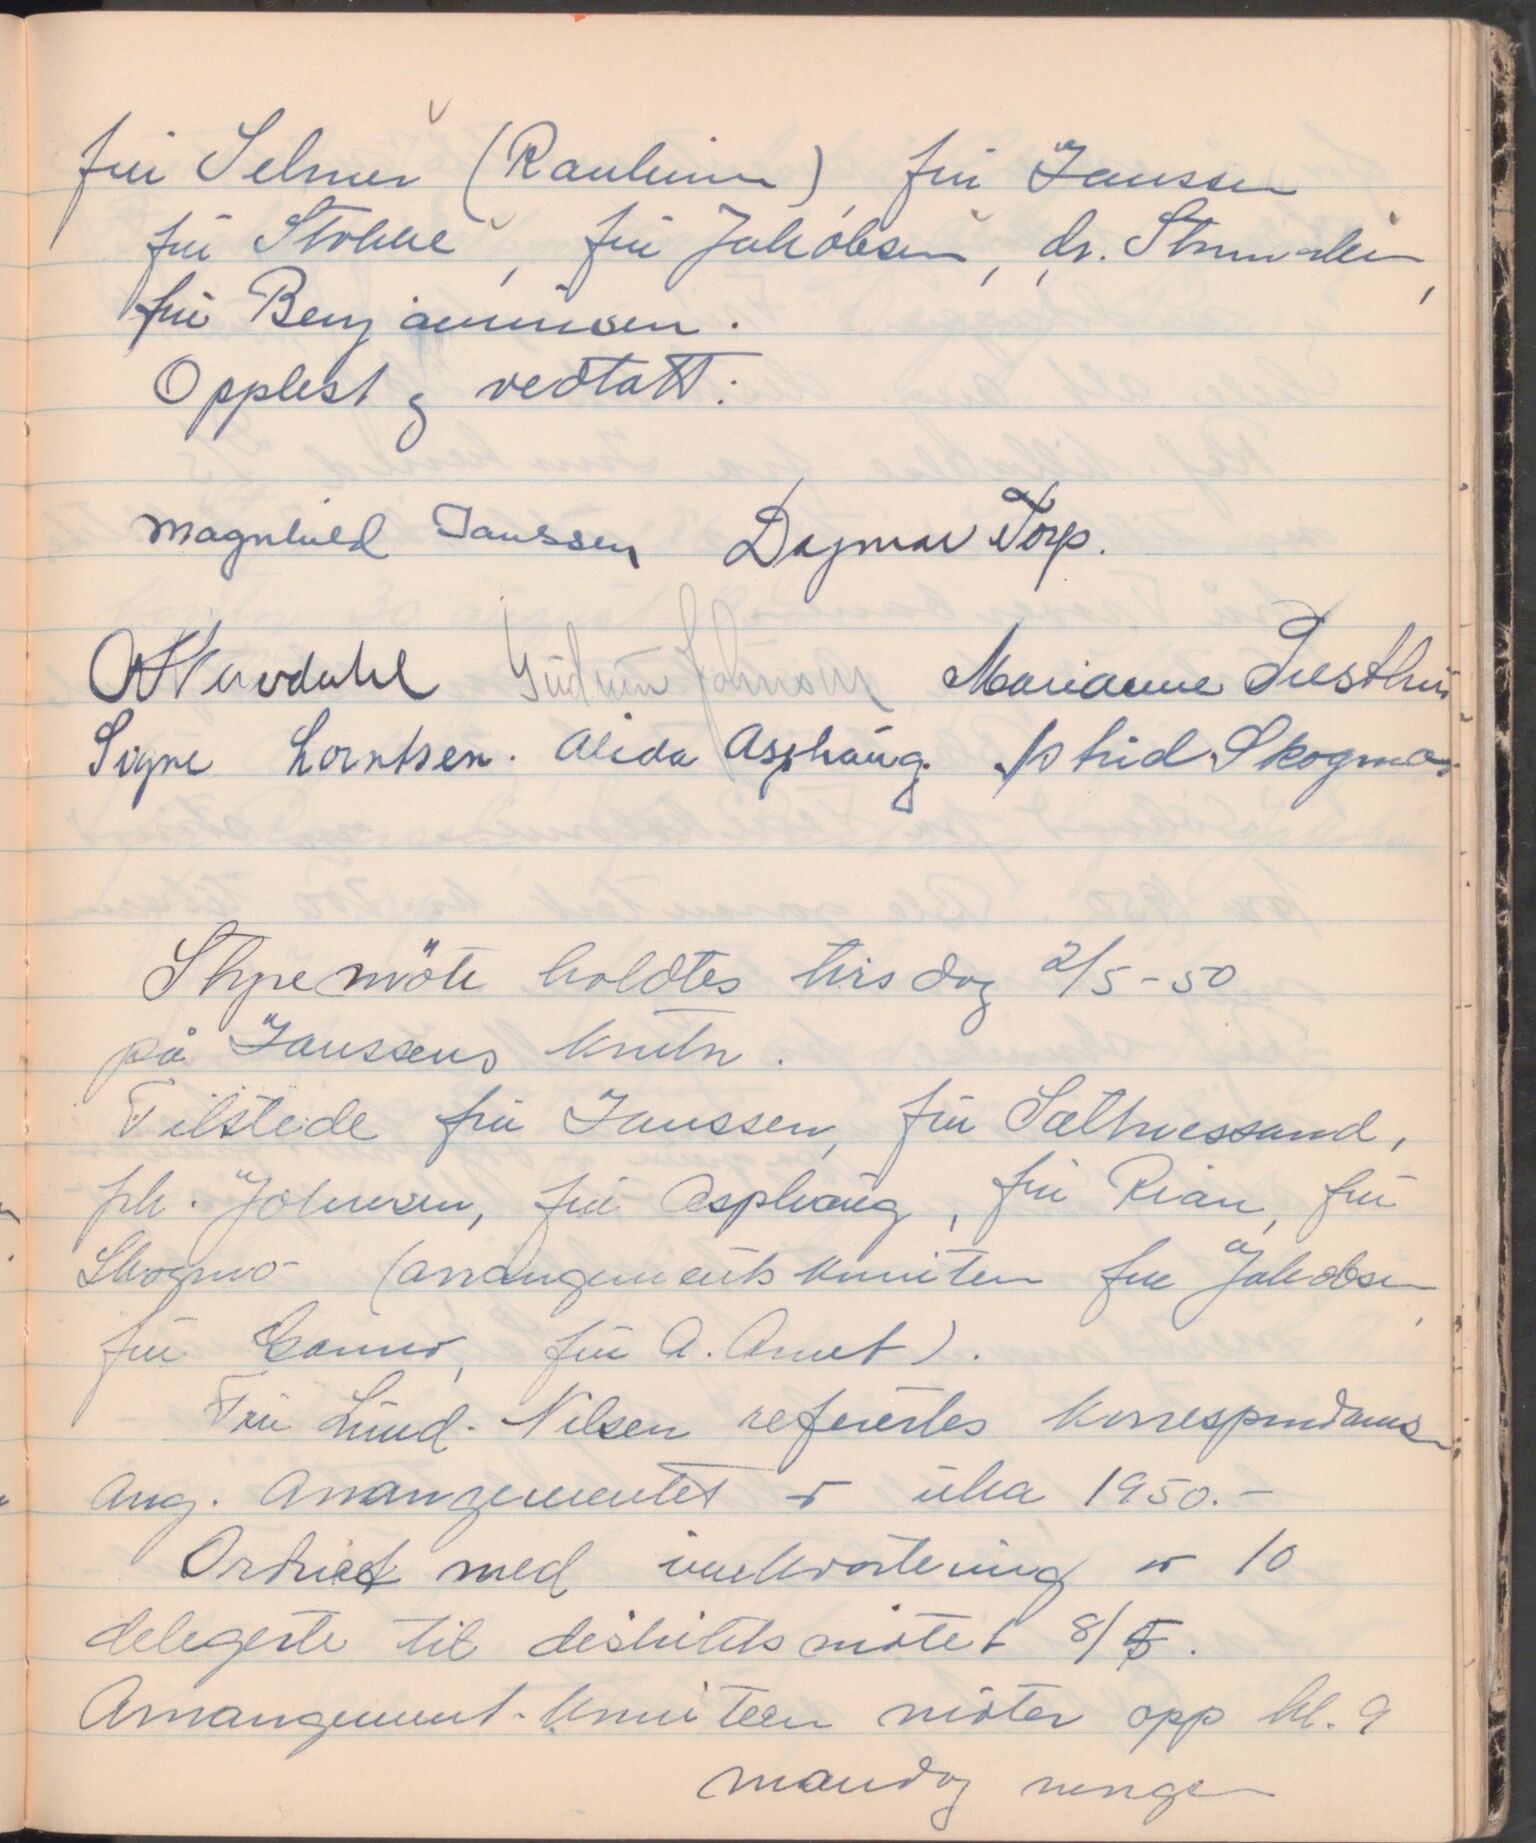 fru Selmer (Ranheim), fru Janssen
fru Stokke, fru Jakobsen, dr.
fru Benjaminsen.
Opplest og vedtatt.
Magnhild Janssen Dagmar Torp.
Gudrun Johnsen Marianne Presthus
Signe Lorntsen. Alida Asphaug. Astrid Skogmo
Styremöte holdtes tirsdag 2/5-50
på Janssens kontor.
Tilstede fru Janssen, fru Sæthressand,
frk. Johnsen, fru Asphaug, fru Rian, fru
Skogmo (arrangementskomiten fru Jakobsen,
fru Ganmo, fru A. Arnet).
Fru Lund-Nilsen referertes korrespondansen
ang. Arrangementet av uka 1950.-
Ordnet med innkvartering av 10
delegerte til distriktsmötet 8/5.
Arrangement-komiteen möter opp kl. 9
mandag morgen